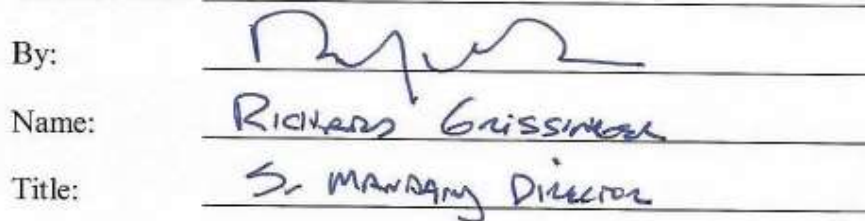 By:
Name: Richard Grissinger
Title: Sr Managing Director